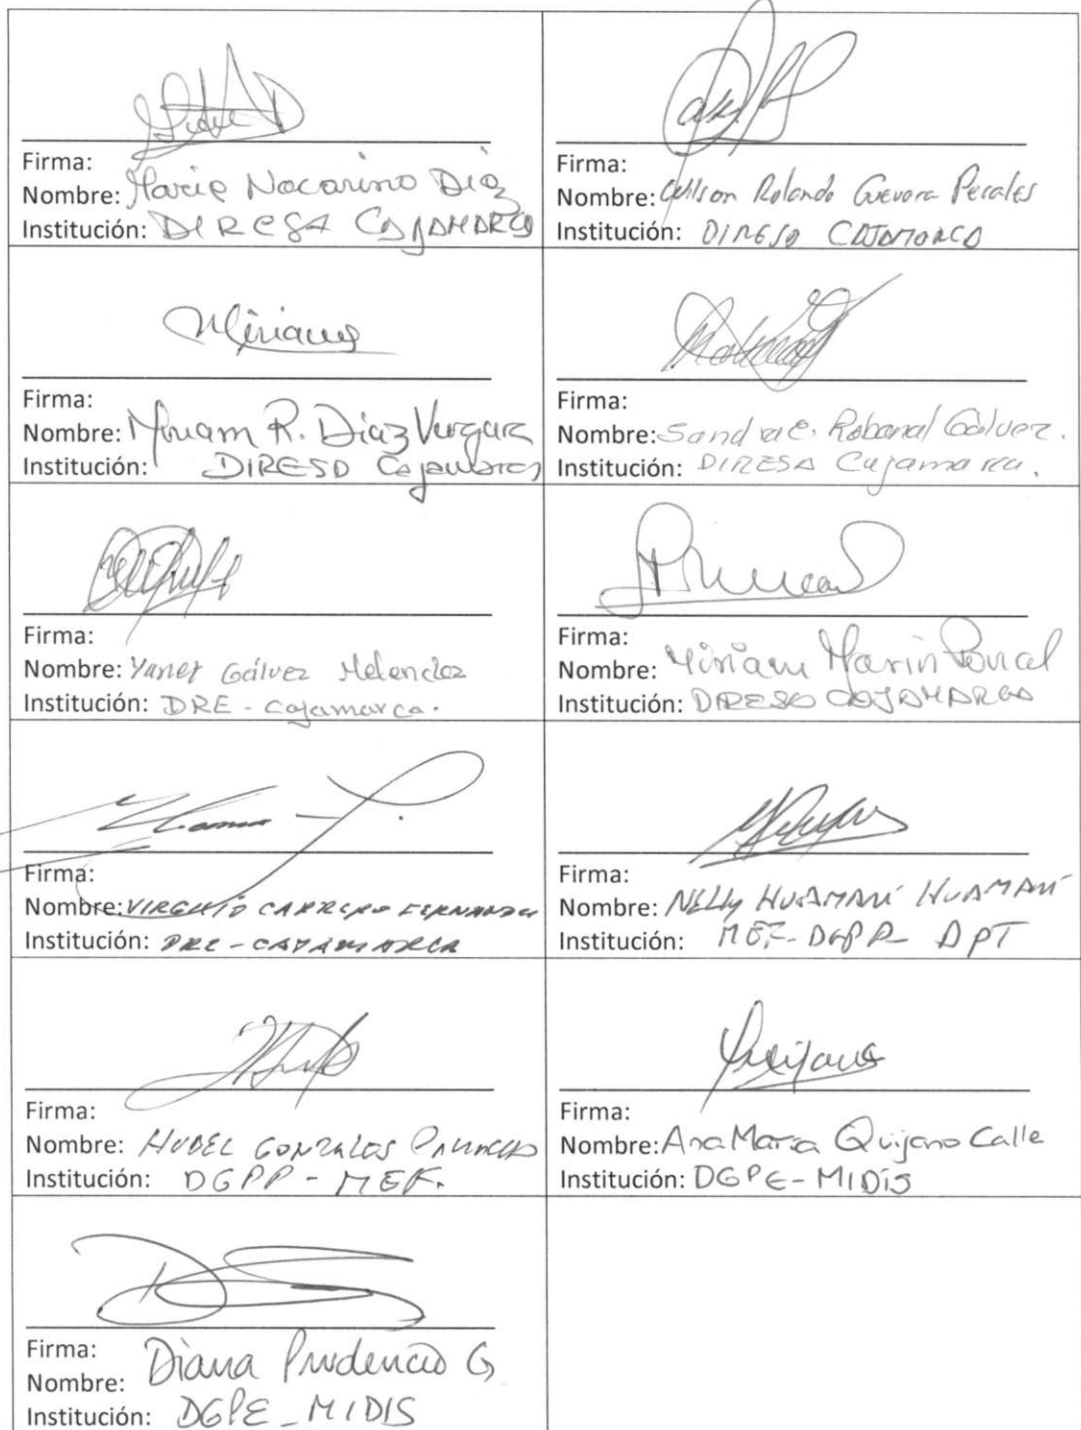 Firma:
Nombre: Maria Nacarino Diaz
Institución: DIRESA CAJAMARCA
Firma:
Nombre: Wilson Rolando Guevara Perales
Institución: DIRESA CAJAMARCA
Firma:
Nombre: Miriam R. Diaz Vergara
Institución: DIRESA Cajamarca
Firma:
Nombre: Sandra E. Rabanal Gálvez.
Institución: DIRESA Cajamarca.
Firma:
Nombre: Yanet Gálvez Melendez
Institución: DRE - Cajamarca.
Firma:
Nombre: Miriam Marin
Institución: DIRESA CAJAMARCA
Firma:
Nombre: VIRGILIO CARRERO FERNANDEZ
Institución: DRE - CAJAMARCA
Firma:
Nombre: NELLY HUAMANÍ HUAMANÍ
Institución: MEF-DGPP- DPT
Firma:
Nombre: HUBEL GONZALES
Institución: DGPP - MEF.
Firma:
Nombre: Ana María Quijano Calle
Institución: DGPE - MIDIS
Firma:
Nombre: Diana Prudencio G.
Institución: DGPE - MIDIS